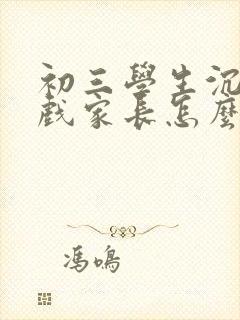 初三學生沉
戲家長怎麼
馮鳴